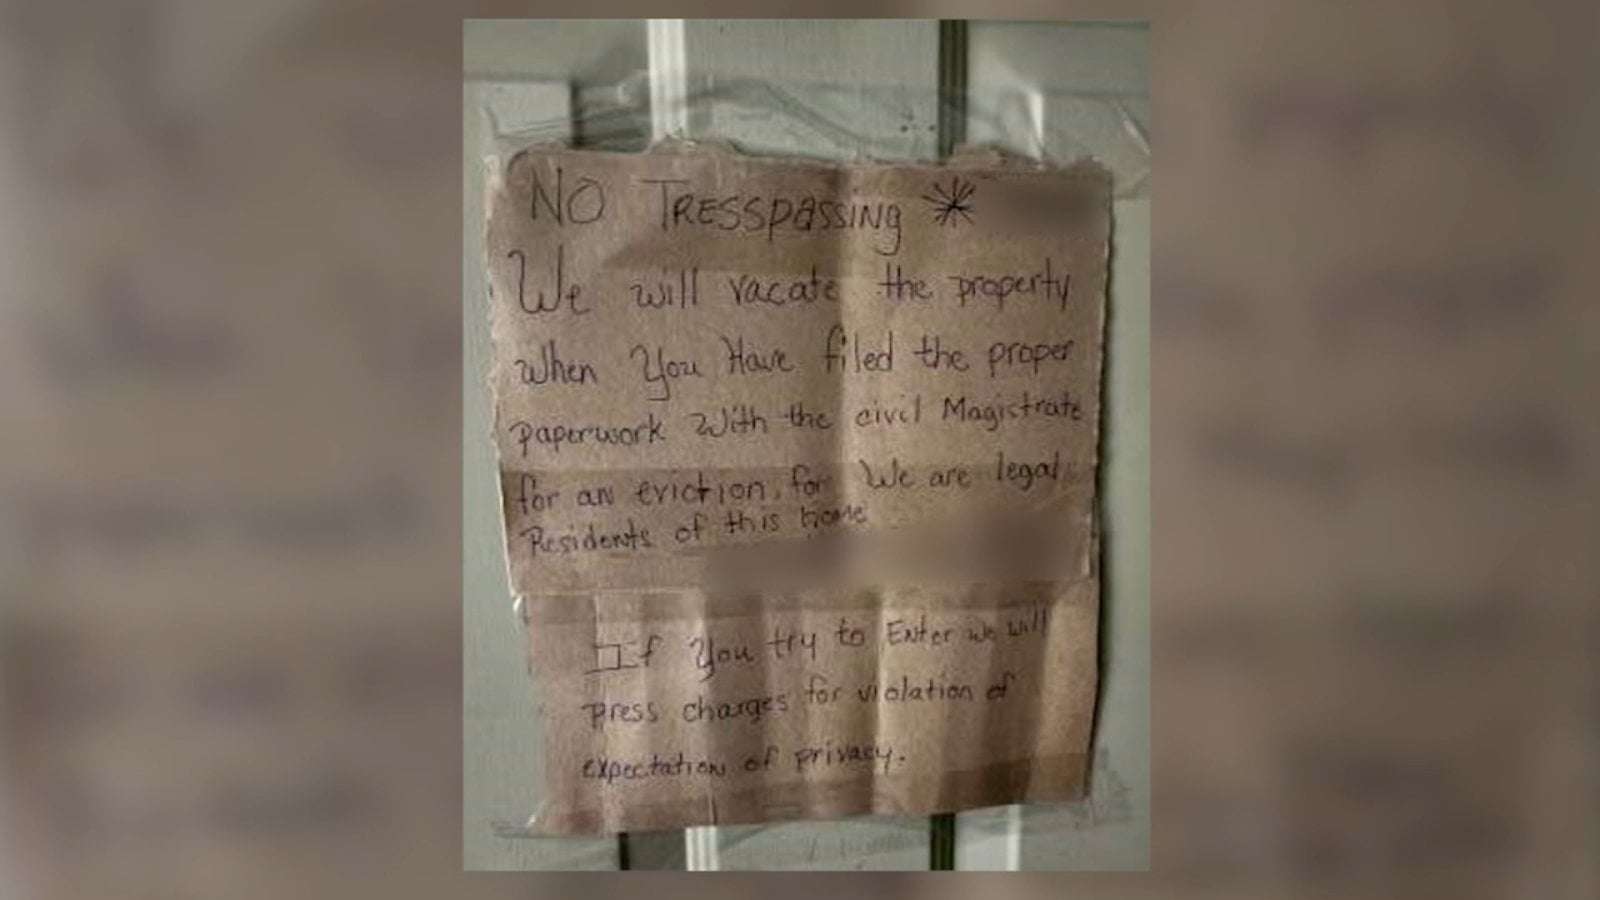 NO TRESSPASSING *
We will vacate the property
when You Have filed the proper
paperwork With the civil Magistrate
for an eviction, for We are legal
Residents of this home
If You try to Enter we will
press charges for violation of
expectation of privacy.